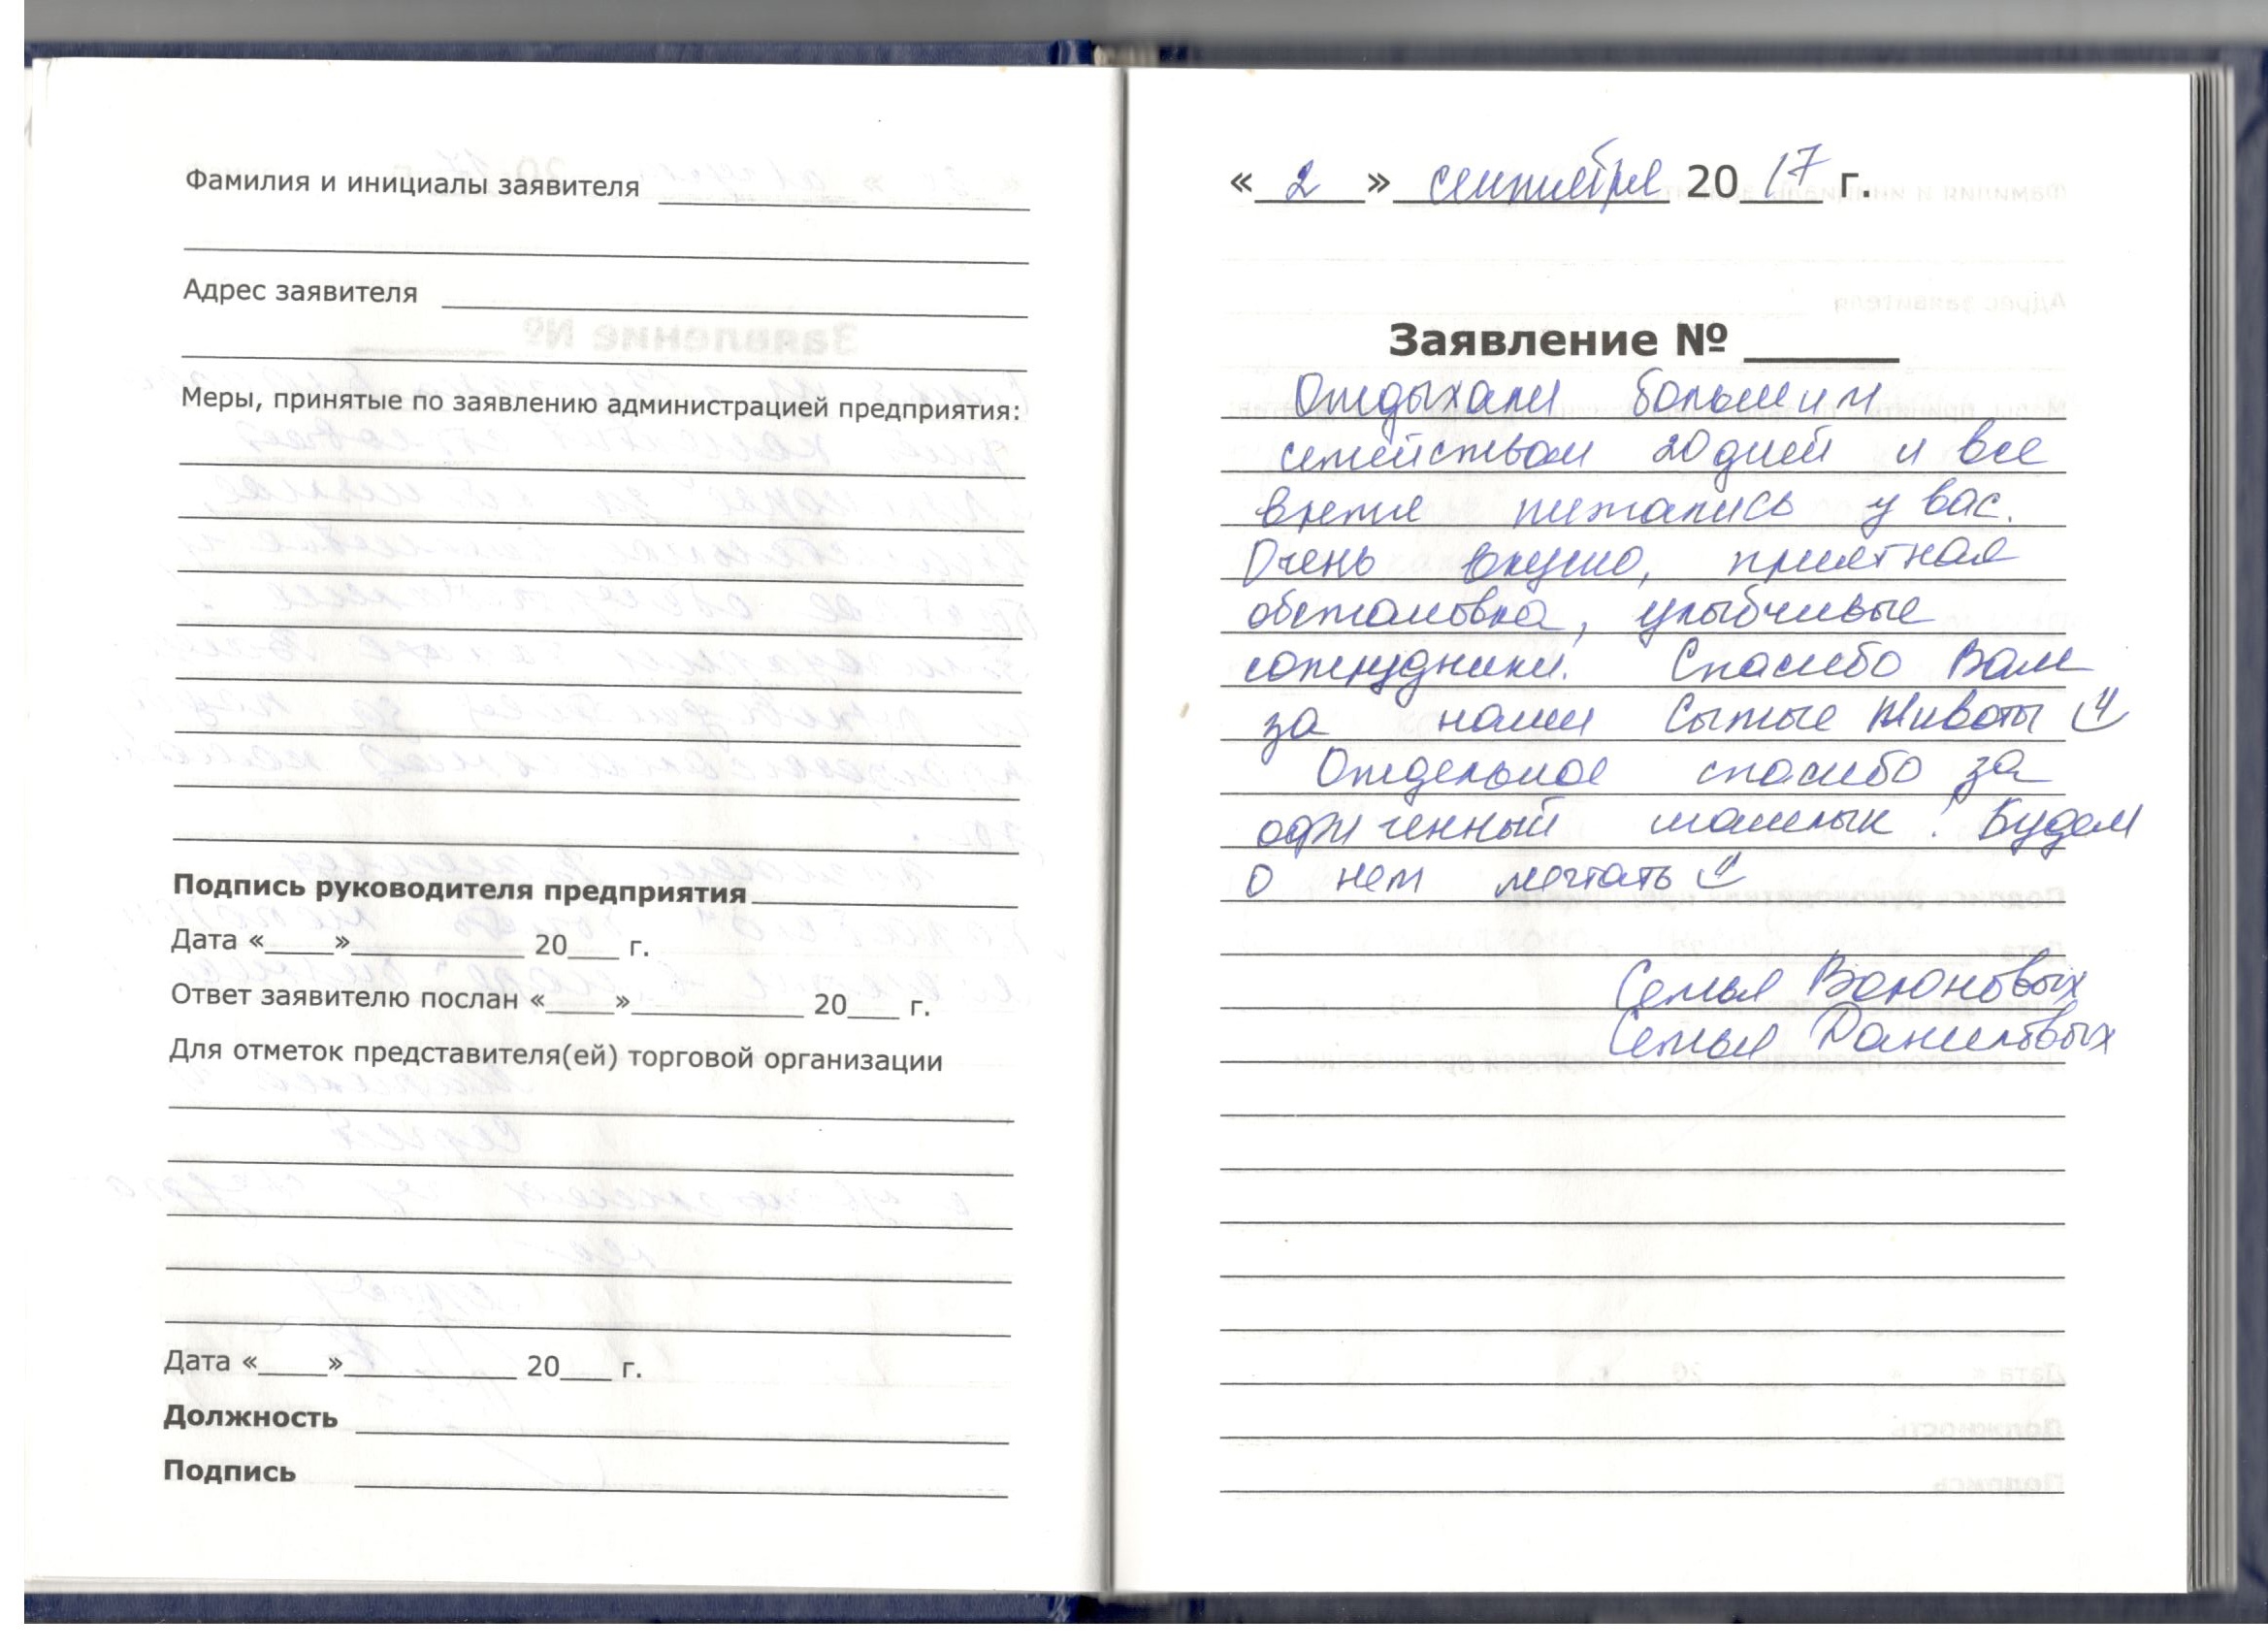 Фамилия и инициалы заявителя
Адрес заявителя
Меры, принятые по заявлению администрацией предприятия:
Подпись руководителя предприятия
Дата «____»__________ 20___ г.
Ответ заявителю послан «____»__________ 20___ г.
Для отметок представителя(ей) торговой организации
Дата «____»__________ 20___ г.
Должность
Подпись
« 2 » сентября 20 17 г.
Заявление № ______
Отдыхали большим
семейством 20 дней и все
время питались у вас.
Очень вкусно, приятная
обстановка, улыбчивые
сотрудники. Спасибо Вам
за наши сытые животы
Отдельное спасибо за
офигенный шашлык! Будем
о нем мечтать
Семья
Семья Даниловых